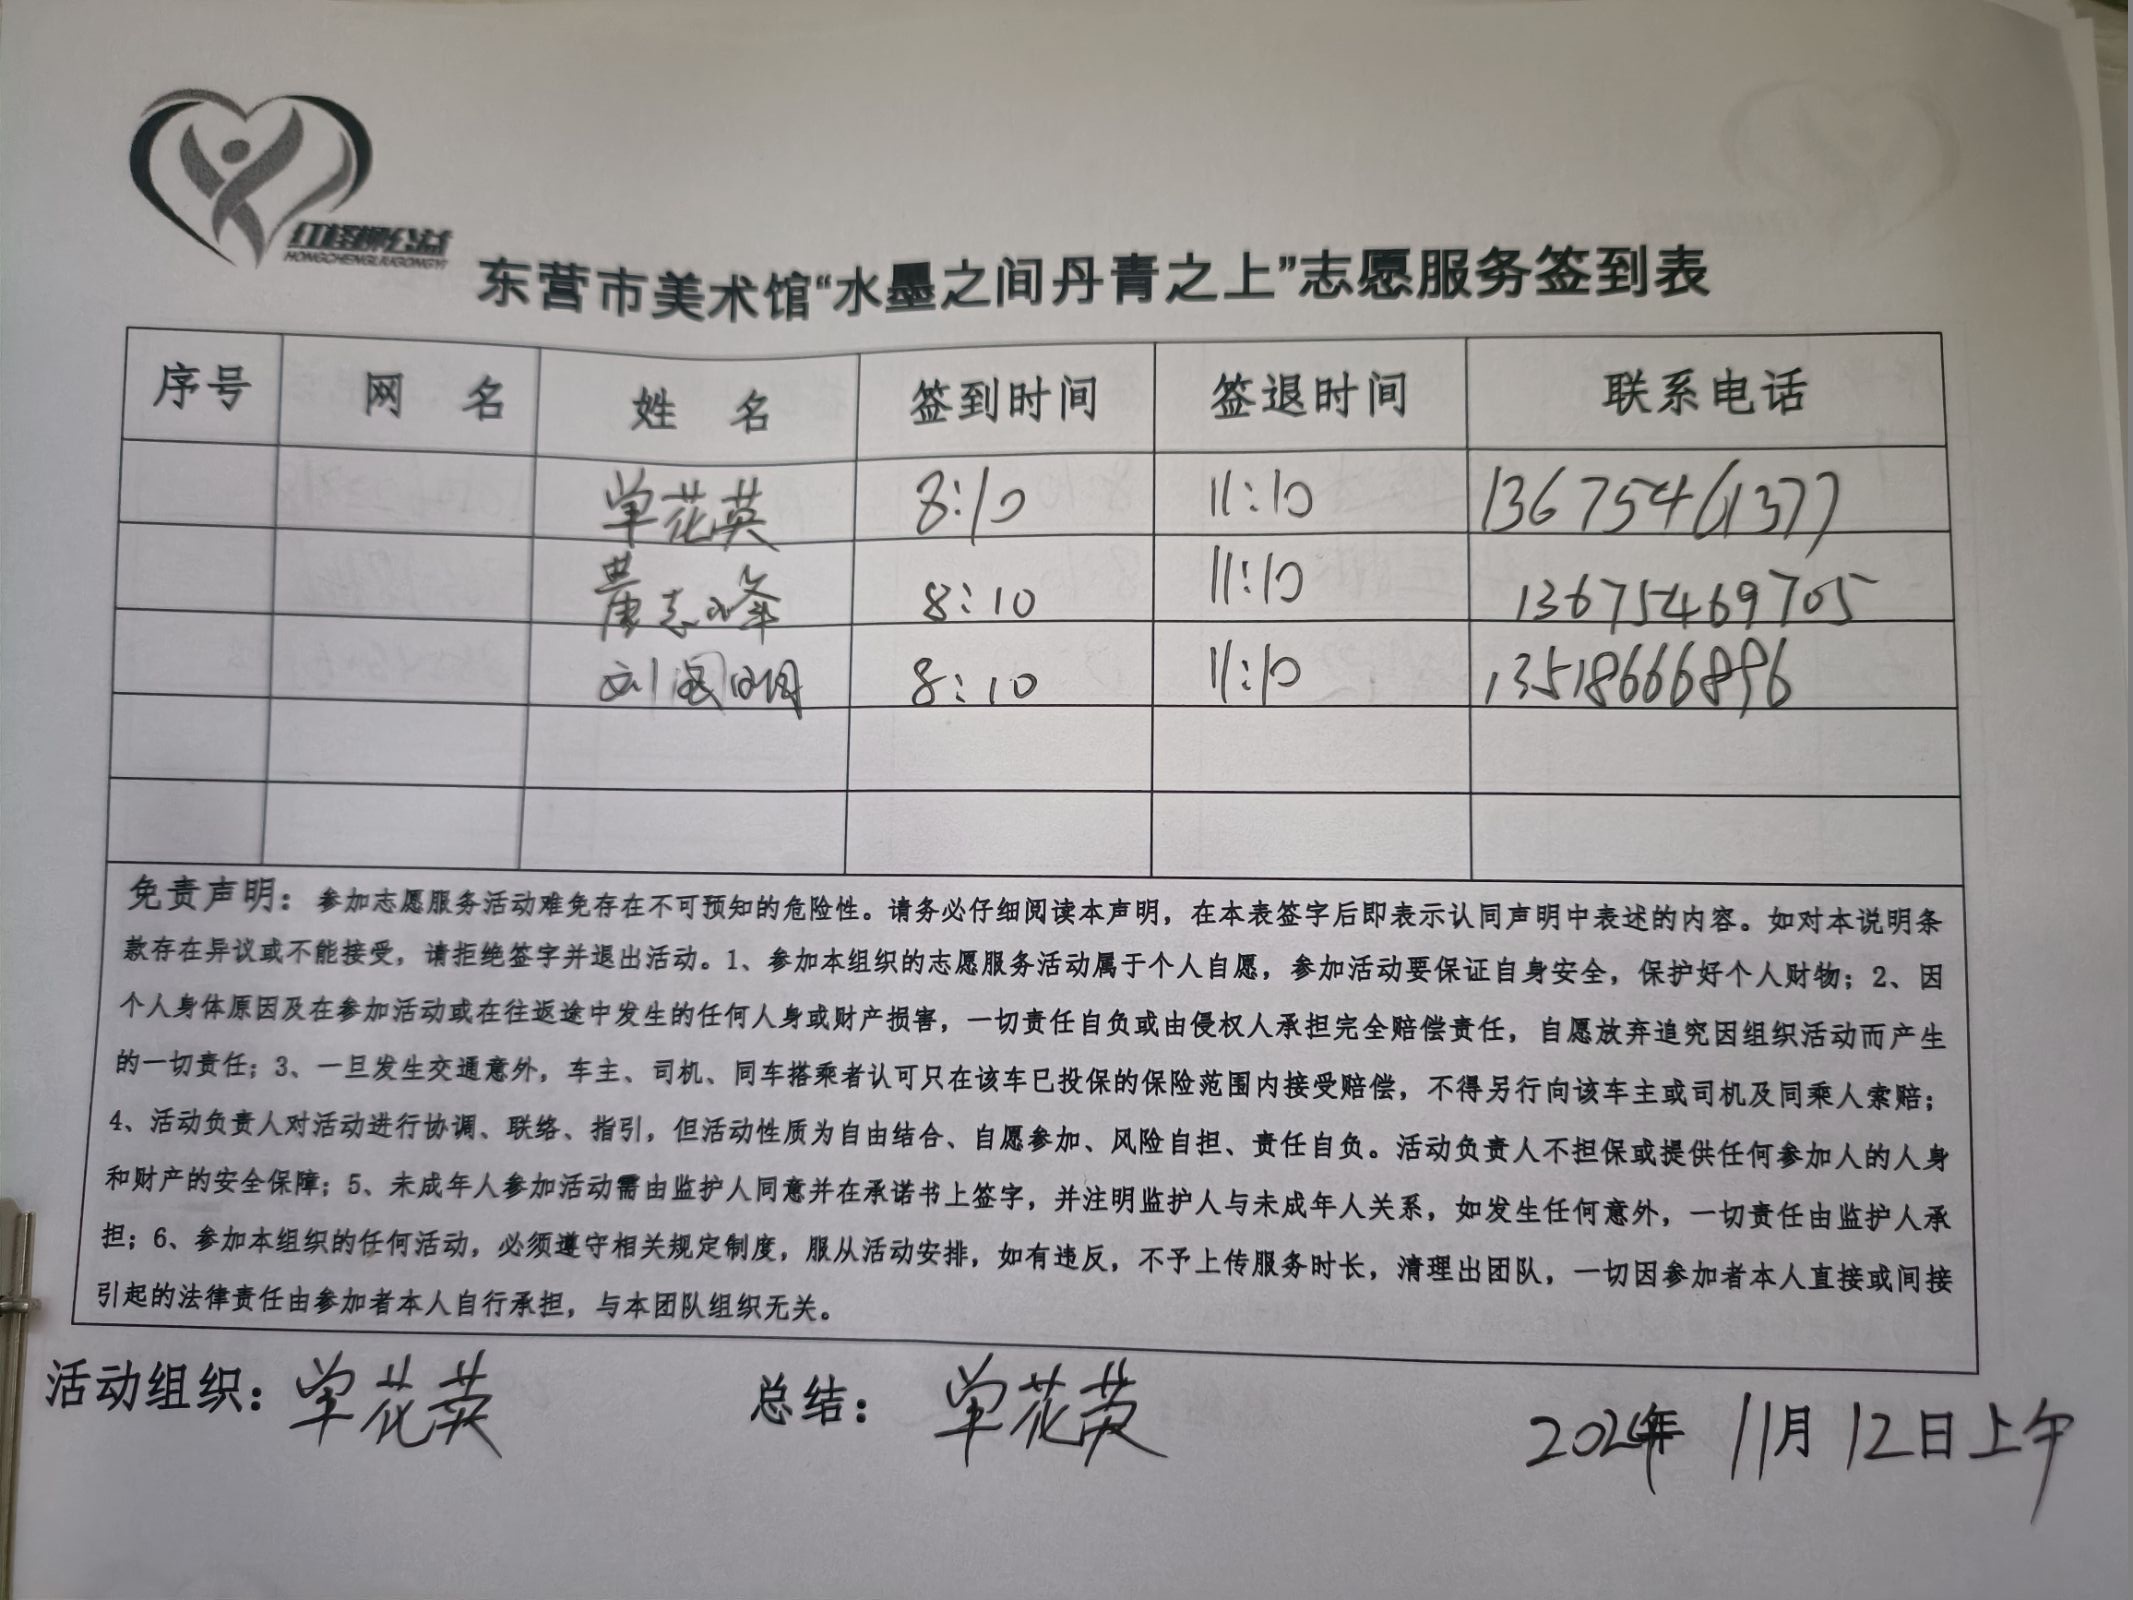 红柽柳公益
HONGCHENGLIUGONGYI
东营市美术馆“水墨之间丹青之上”志愿服务签到表
序号 网 名 姓 名 签到时间 签退时间 联系电话
单花英 8:10 11:10 13675461377
黄志峰 8:10 11:10 13675469705
刘国明 8:10 11:10 13518666896
免责声明：参加志愿服务活动难免存在不可预知的危险性。请务必仔细阅读本声明，在本表签字后即表示认同声明中表述的内容。如对本说明条
款存在异议或不能接受，请拒绝签字并退出活动。1、参加本组织的志愿服务活动属于个人自愿，参加活动要保证自身安全，保护好个人财物；2、因
个人身体原因及在参加活动或在往返途中发生的任何人身或财产损害，一切责任自负或由侵权人承担完全赔偿责任，自愿放弃追究因组织活动而产生
的一切责任；3、一旦发生交通意外，车主、司机、同车搭乘者认可只在该车已投保的保险范围内接受赔偿，不得另行向该车主或司机及同乘人索赔；
4、活动负责人对活动进行协调、联络、指引，但活动性质为自由结合、自愿参加、风险自担、责任自负。活动负责人不担保或提供任何参加人的人身
和财产的安全保障；5、未成年人参加活动需由监护人同意并在承诺书上签字，并注明监护人与未成年人关系，如发生任何意外，一切责任由监护人承
担；6、参加本组织的任何活动，必须遵守相关规定制度，服从活动安排，如有违反，不予上传服务时长，清理出团队，一切因参加者本人直接或间接
引起的法律责任由参加者本人自行承担，与本团队组织无关。
活动组织：单花英 总结：单花英 2024年 11月 12日上午